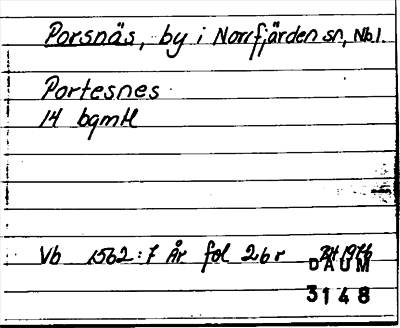 Porsnäs, by i Norrfjärden sn, Nb l.
Portesnes
14 bqmtl
Vb 1562:7 År fol 26 r
DAUM
3148